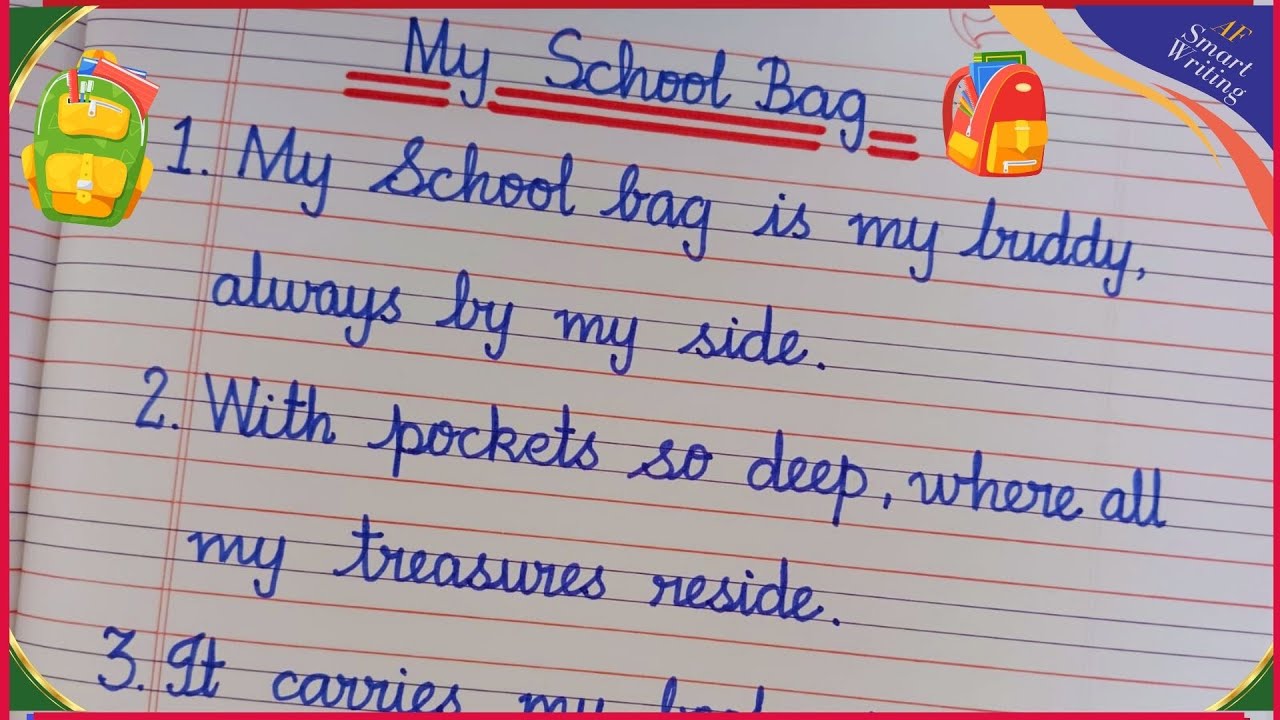 My School Bag
AF
Smart
Writing
1. My School bag is my buddy,
always by my side.
2. With pockets so deep, where all
my treasures reside.
3. It carries my